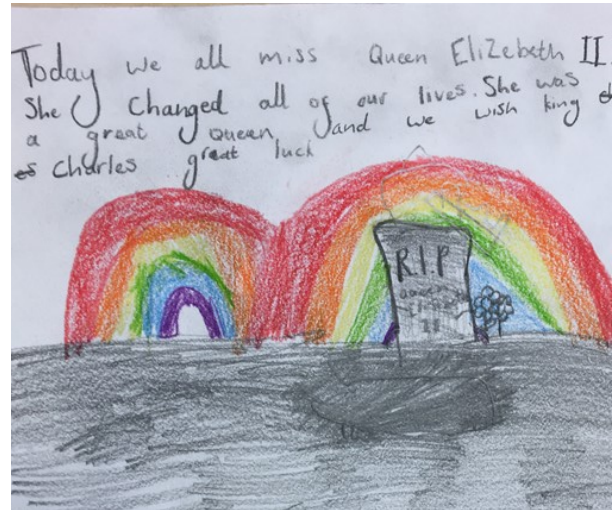 Today we all miss Queen EliZebeth II.
She changed all of our lives. She was
a great Queen and we wish king
Charles great luck
R.I.P
Queen
II